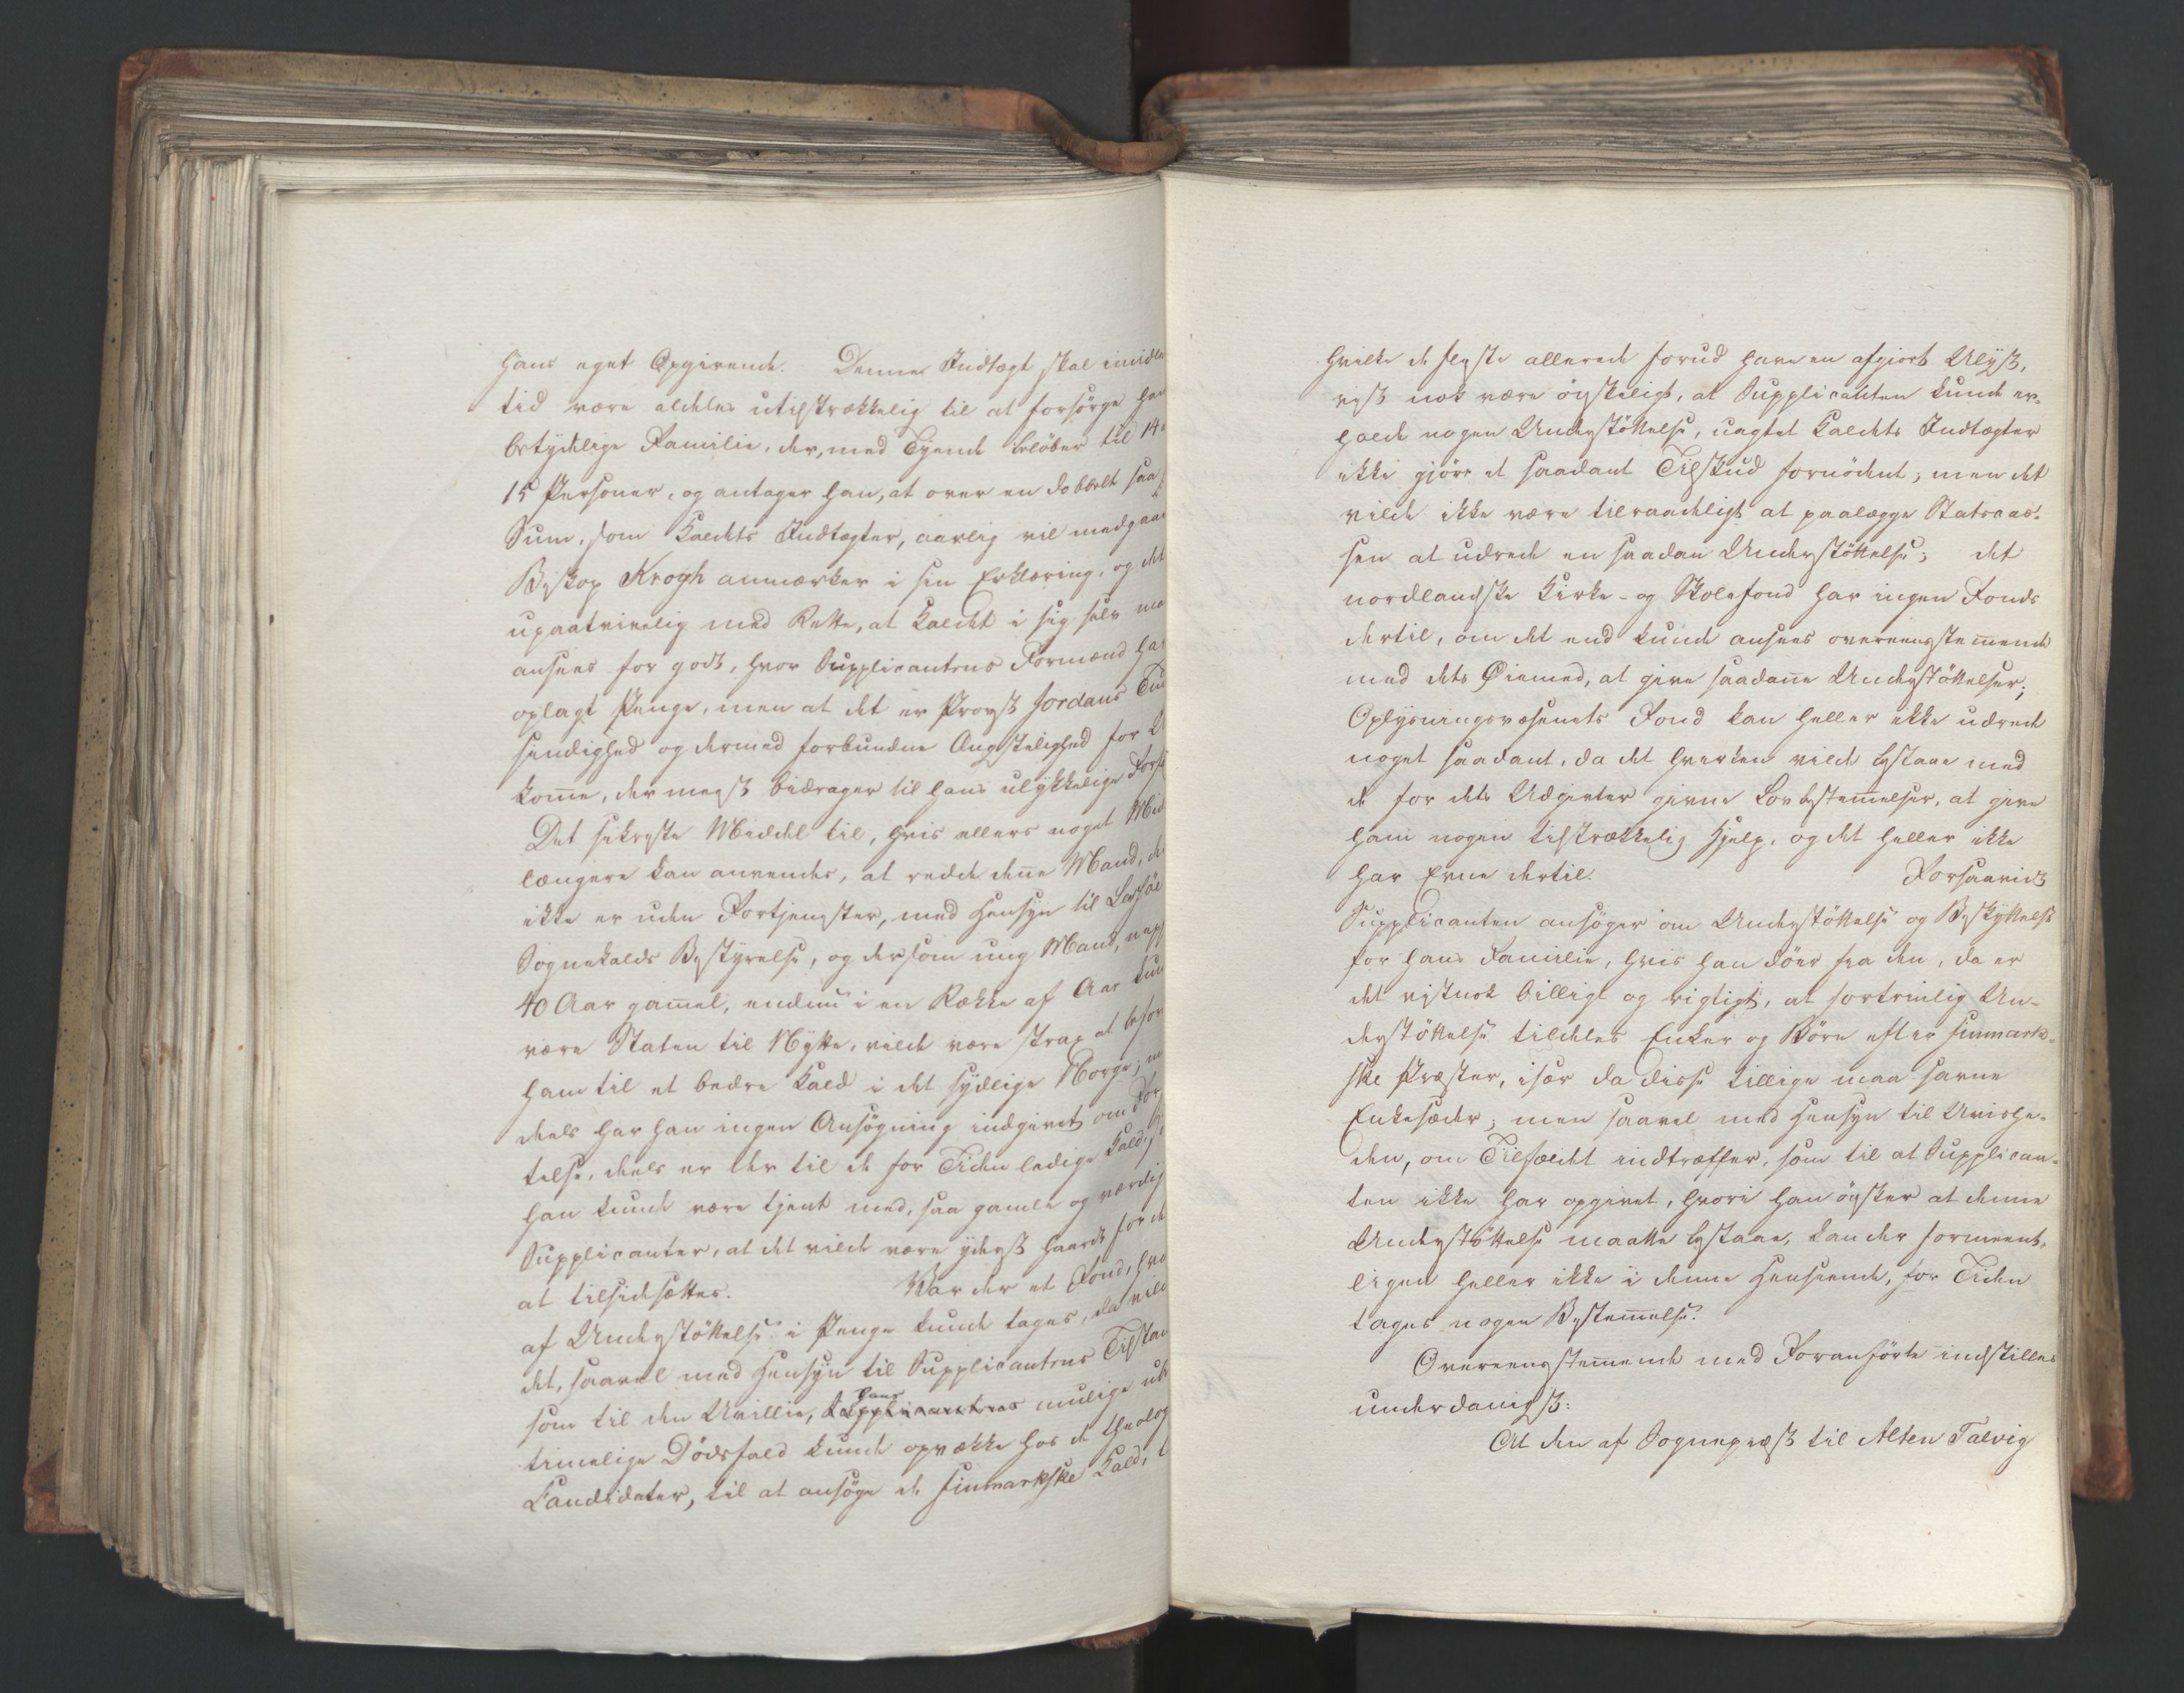 hans eget Opgivende. Denne Indtægt skal imidler
tid være aldeles utilstrækkelig til at forsørge han
betydelige Familie, der, med Tyende beløber til 14 a
15 Personer, og antager han, at over en dobbelt saa
Sum, som Kaldets Indtægter, aarlig vil medgaae
Biskop Krogh anmærker i sin Erklæring, og det
upaatvivelig med Rette, at Kaldet i sig selv maa
ansees for godt, hvor Supplicantens Formænd har
oplagt Penge, men at det er Provst Jordans Tun
sindighed og dermed forbundne Ængstelighed for U
komme, der meest bidrager til hans ulykkelige Forf
Det sikreste Middel til, hvis ellers noget Mid
længere kan anvendes, at redde denne Mand, de
ikke er uden Fortjenester, med Hensyn til
Sognekalds Bestyrelse, og der som ung Mand, nepp
40 Aar gamel, endnu i en Række af Aar kun
være Staten til Nytte, vilde være strax at befor
ham til et bedre Kald i det sydlige Norge; m
deels har han ingen Ansøgning indgivet om For
telse, deels er der til de for Tiden ledige Kald, s
han kunde være tjent med, saa gamle og værdig
Supplicanter, at det vilde være yderst haardt for de
at tilsidesættes. Var der et Fond, hvo
af Understøttelse i Penge kunde tages, da vild
det, saavel med Hensyn til Supplicantens Tilstan
som til den Uvillie, hans Supplicantens mulige ube
timelige Dødsfald kunde opvække hos de theolog
Candidater, til at ansøge de finmarkske Kald,
hvilke de fleste allerede forud have en afgjort Ulyst,
vist nok være ønskeligt, at Supplicanten kunde er-
holde nogen Understøttelse, uagtet Kaldets Indtægter
ikke gjøre et saadant Tilskud fornødent; men det
vilde ikke være tilraadeligt at paalægge Statscas-
sen at udrede en saadan Understøttelse; det
nordlandske Kirke- og Skolefond har ingen Fonds
dertil, om det end kunde ansees overeensstemmende
med dets Øiemed, at give saadanne Understøttelser;
Oplysningsvæsenets Fond kan heller ikke udrede
noget saadant, da det hverken vilde bestaae med
de for dets Udgivter givne Lovbestemmelser, at give
ham nogen tilstrækkelig Hjelp, og det heller ikke
har Evne dertil. Forsaavidt
Supplicanten ansøger om Understøttelse og Beskyttelse
for hans Familie, hvis han döer fra den, da er
det vistnok billigt og rigtigt, at fortrinlig Un-
derstøttelse tildeles Enker og Børn efter finmark-
ske Præster, især da disse tillige maa savne
Enkesæder; men saavel med Hensyn til Uvishe-
den, om Tilfældet indtræffer, som til at Supplican-
ten ikke har opgivet, hvori han ønsker at denne
Understøttelse maatte bestaae, kan der formeent-
ligen heller ikke i denne Henseende, for Tiden
tages nogen Bestemmelse.
Overeensstemmende med Foranførte indstilles
underdanigst:
At den af Sognepræst til Alten Talvig